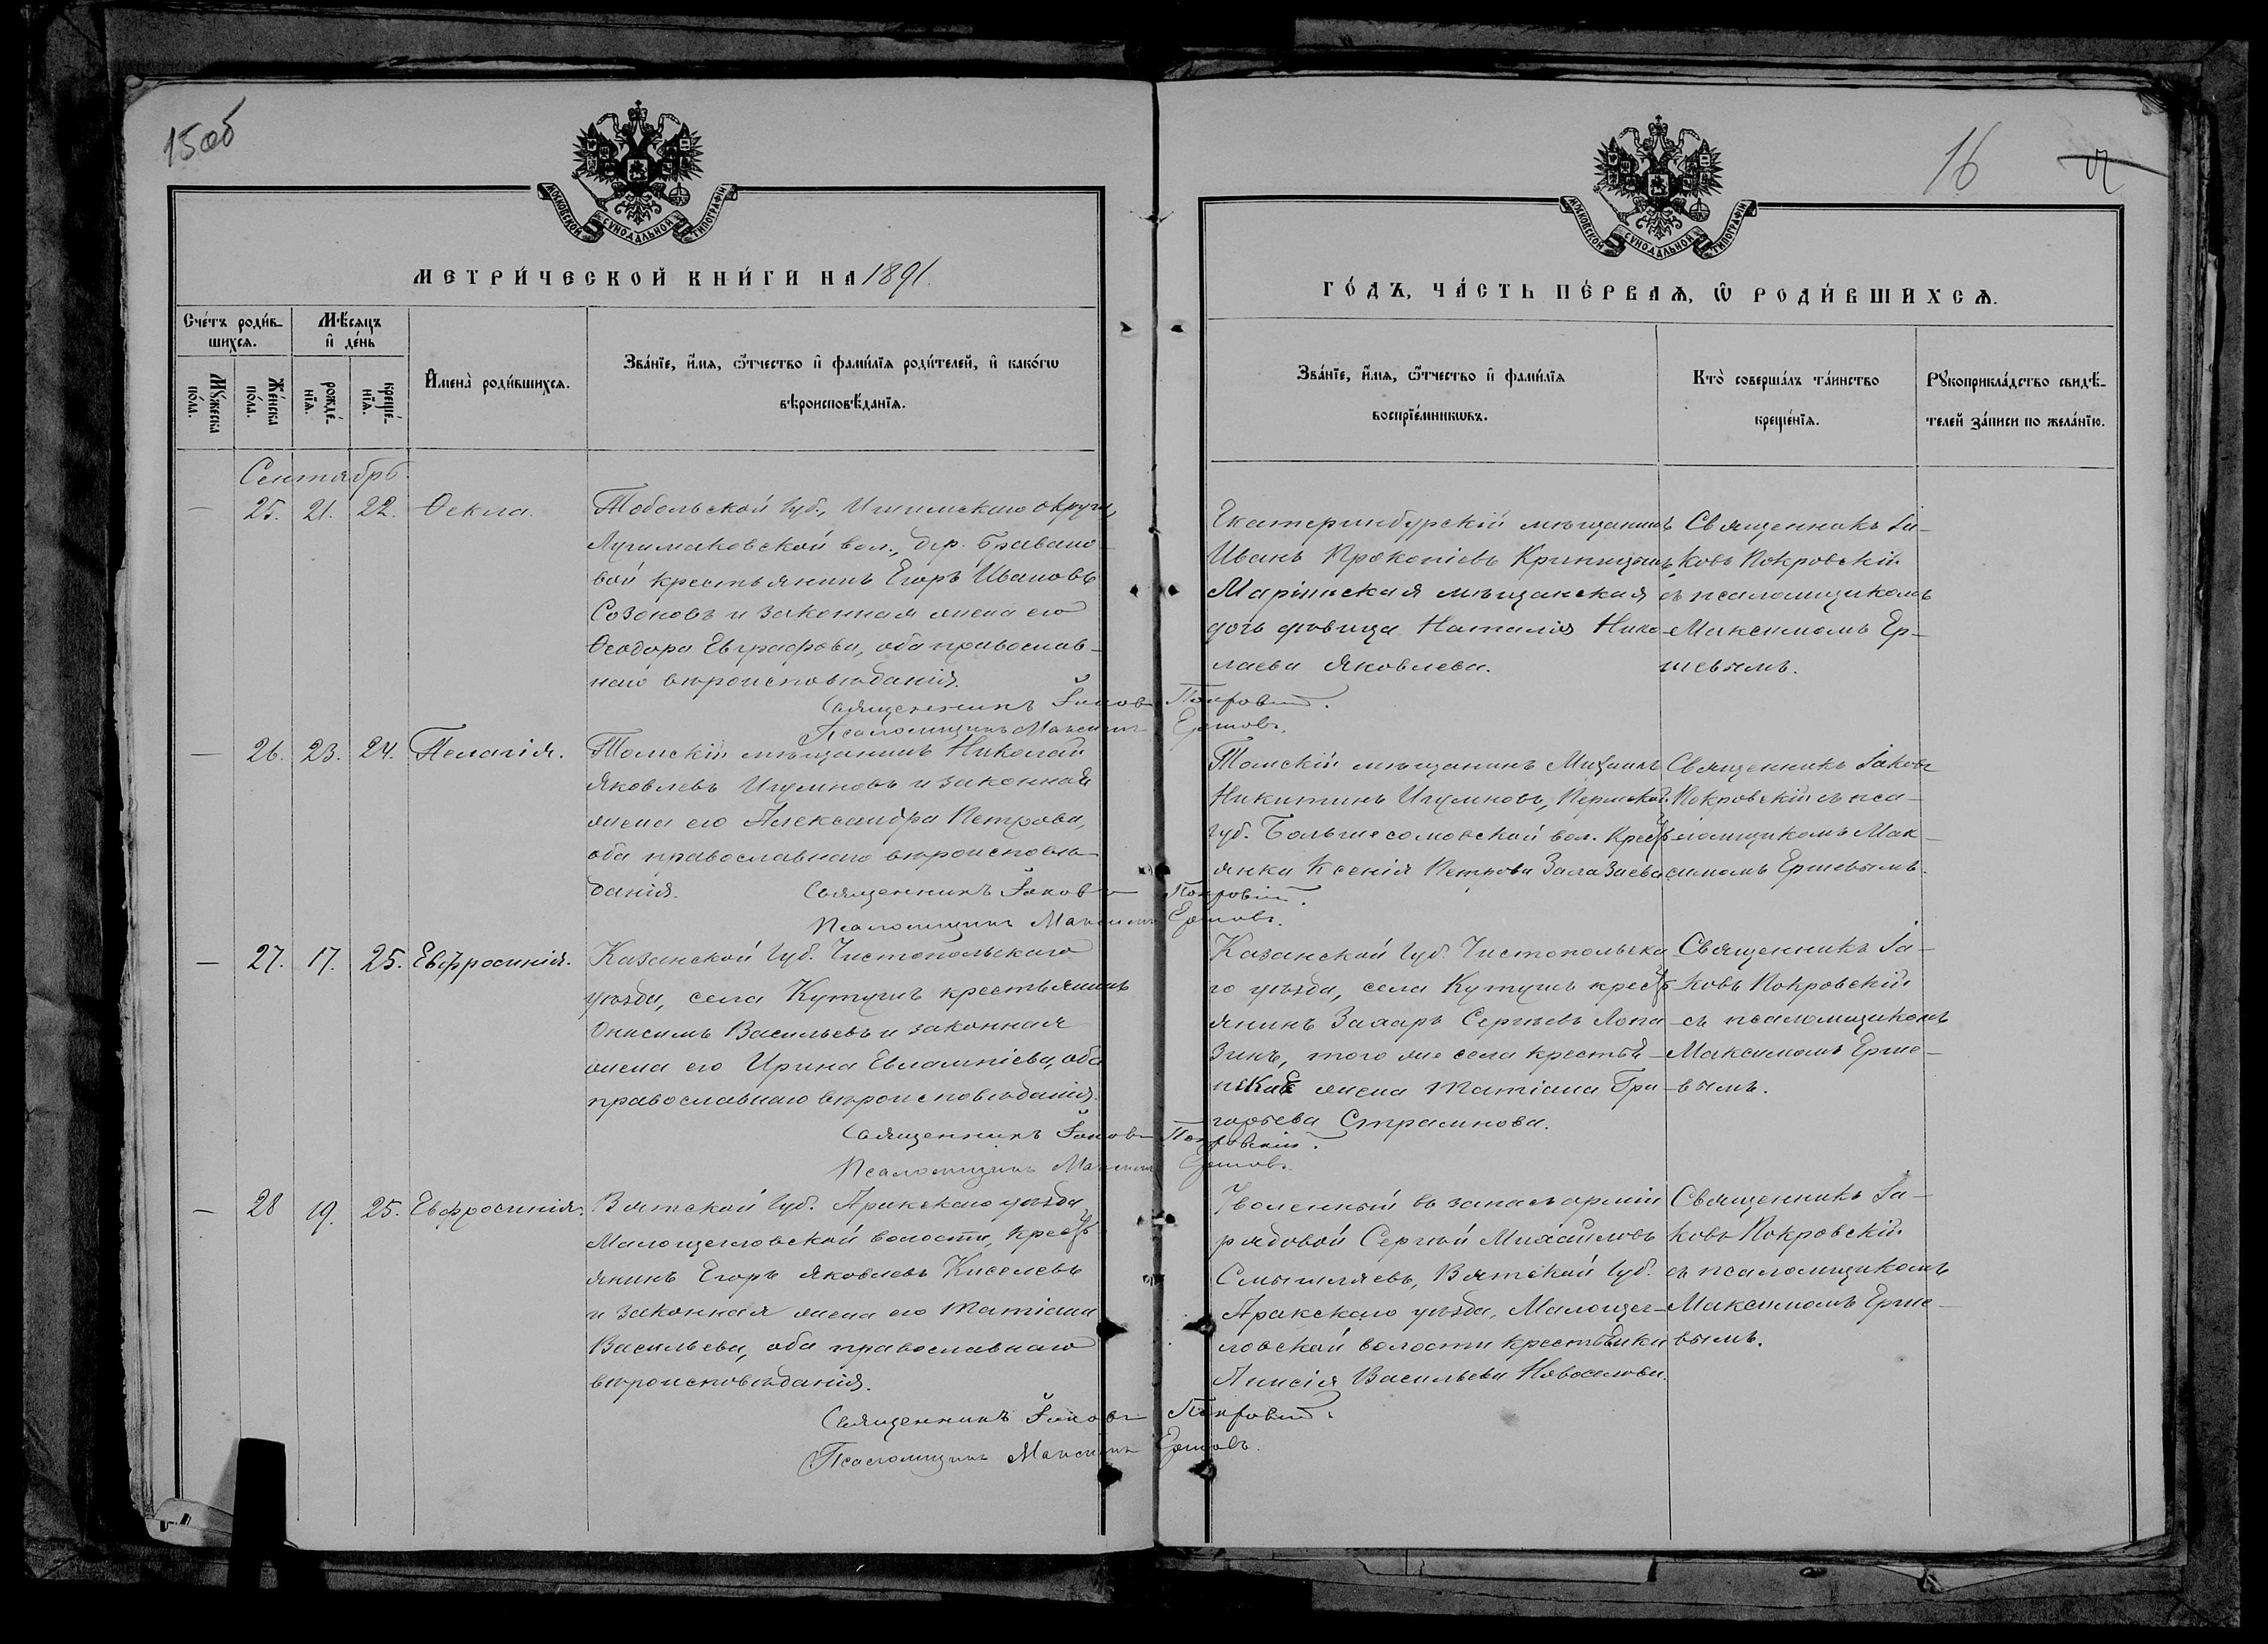 15об
МОСКОВСКОЙ СѴНОДАЛЬНОЙ ТИПОГРАФІИ
МЕТРИ́ЧЕСКОЙ КНИ́ГИ НА 1891.
Сче́тъ роди́вшихсѧ.
Мѣ́сѧцъ и҆ де́нь
Мꙋ́жеска по́ла.
Же́нска по́ла.
рожде́нїѧ.
креще́нїѧ.
И҆мена̀ роди́вшихсѧ.
Зва́нїе, и҆́мѧ, ѻ҆́тчество и҆ фами́лїѧ роди́телей, и҆ како́гѡ
вѣроисповѣ́данїѧ.
Сентябрь.
— 25. 21. 22. Ѳекла.
Тобольской губ., Ишимскаго округа,
вол., дер.
вой крестьянинъ Егоръ Ивановъ
Созоновъ и законная жена его
Ѳеодора Евграфова, оба православ-
наго вѣроисповѣданія.
Священникъ Іаковъ Покровскій.
Псаломщикъ Максимъ Ершовъ.
— 26. 23. 24. Пелагія.
Томскій мѣщанинъ Николай
Яковлевъ Игумновъ и законная
жена его Александра Петрова,
оба православнаго вѣроисповѣ-
данія.
Священникъ Іаковъ Покровскій.
Псаломщикъ Максимъ Ершовъ.
— 27. 17. 25. Евфросинія.
Казанской губ. Чистопольскаго
уѣзда, села Кутушъ крестьянинъ
Онисимъ Васильевъ и законная
жена его Ирина Евлампіева, оба
православнаго вѣроисповѣданія.
Священникъ Іаковъ Покровскій.
Псаломщикъ Максимъ Ершовъ.
— 28 19. 25. Евфросинія.
Вятской губ. Яранскаго уѣзда
Малощегловской волости, кресть
янинъ Егоръ Яковлевъ Киселевъ
и законная жена его Татіана
Васильева, оба православнаго
вѣроисповѣданія.
Священникъ Іаковъ Покровскій.
Псаломщикъ Максимъ Ершовъ.
16
МОСКОВСКОЙ СѴНОДАЛЬНОЙ ТИПОГРАФІИ
ГО́ДЪ, ЧА́СТЬ ПЕ́РВАѦ, Ѡ҆ РОДИ́ВШИХСѦ.
Зва́нїе, и҆́мѧ, ѻ҆́тчество и҆ фами́лїѧ
воспрїе́мникѡвъ.
Кто̀ соверша́лъ та́инство
креще́нїѧ.
Рꙋкоприкла́дство свидѣ́-
телей за́писи по жела́нїю.
Екатеринбурскій мѣщанинъ
Иванъ Прокопіевъ Криницынъ,
Маріинская мѣщанская
дочь дѣвица Наталія Нико-
лаева Яковлева.
Священникъ Іа-
ковъ Покровскій
съ псаломщикомъ
Максимомъ Ер-
шевымъ.
Томскій мѣщанинъ Михаилъ
Никитинъ Игумновъ, Пермской
губ. Большесосновской вол. кресть
янка Ксенія Петрова
Священникъ Іаковъ
Покровскій съ пса-
ломщикомъ Мак-
симомъ Ершевымъ.
Казанской губ. Чистопольска
го уѣзда, села Кутушъ кресть
янинъ Захаръ Сергѣевъ Лопа
зинъ, того же села крестья-
нская жена Татіана Гри-
горьева
Священникъ Іа-
ковъ Покровскій
съ псаломщикомъ
Максимомъ Ерше-
вымъ.
Уволенный въ запасъ арміи
рядовой Сергѣй Михайловъ
Смышляевъ, Вятской губ.
Яранскаго уѣзда, Малощег-
ловской волости крестьянки
Анисія Васильева Новоселова.
Священникъ Іа-
ковъ Покровскій
съ псаломщикомъ
Максимомъ Ерше-
вымъ.